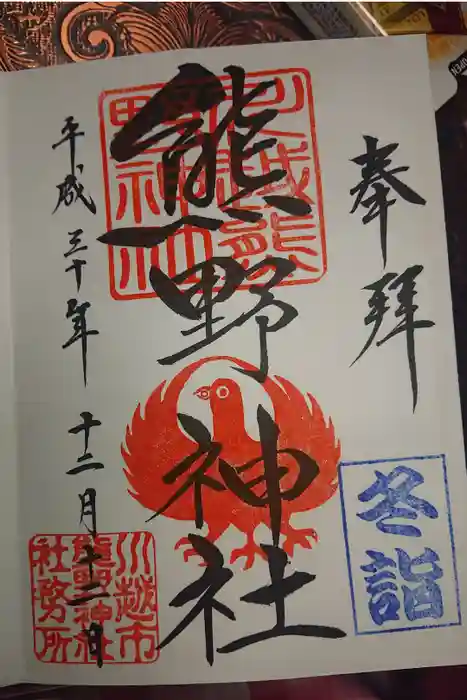 奉拝
冬詣
熊野神社
川越熊野神社
平成三十年 十二月 十二日
川越市
熊野神社
社務所
OPEN